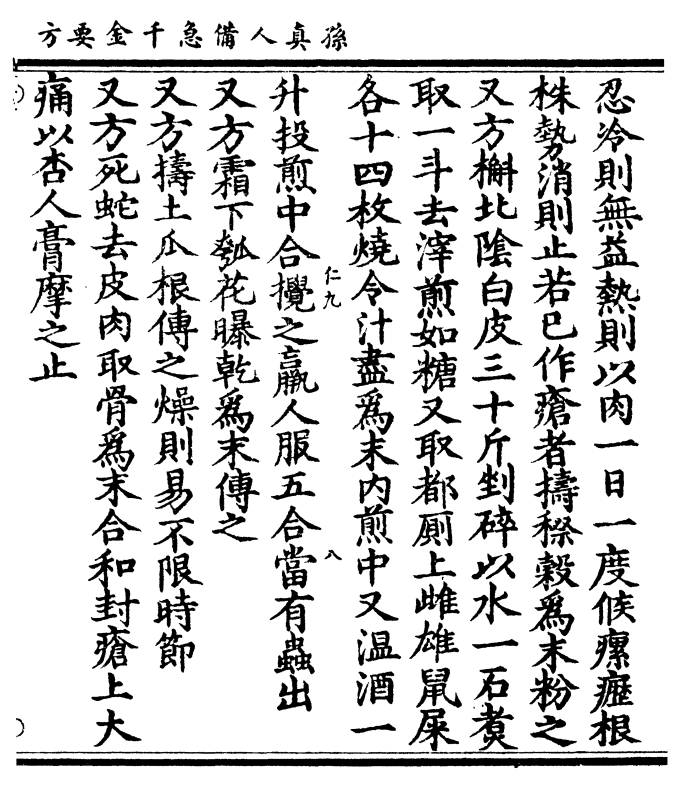 孫真人備急千金要方
忍冷則無益熱則以肉一日一度候瘰癧根
株勢消則止若已作瘡者擣穄穀爲末粉之
又方槲北陰白皮三十斤剉碎以水一石煑
取一斗去滓煎如糖又取都厠上雌雄鼠屎
各十四枚燒令汁盡爲末内煎中又温酒一
升投煎中合攪之羸人服五合當有蟲出
仁九
八
又方霜下瓠花曝乾爲末傅之
又方擣土瓜根傅之燥則易不限時節
又方死蛇去皮肉取骨爲末合和封瘡上大
痛以杏人膏摩之止